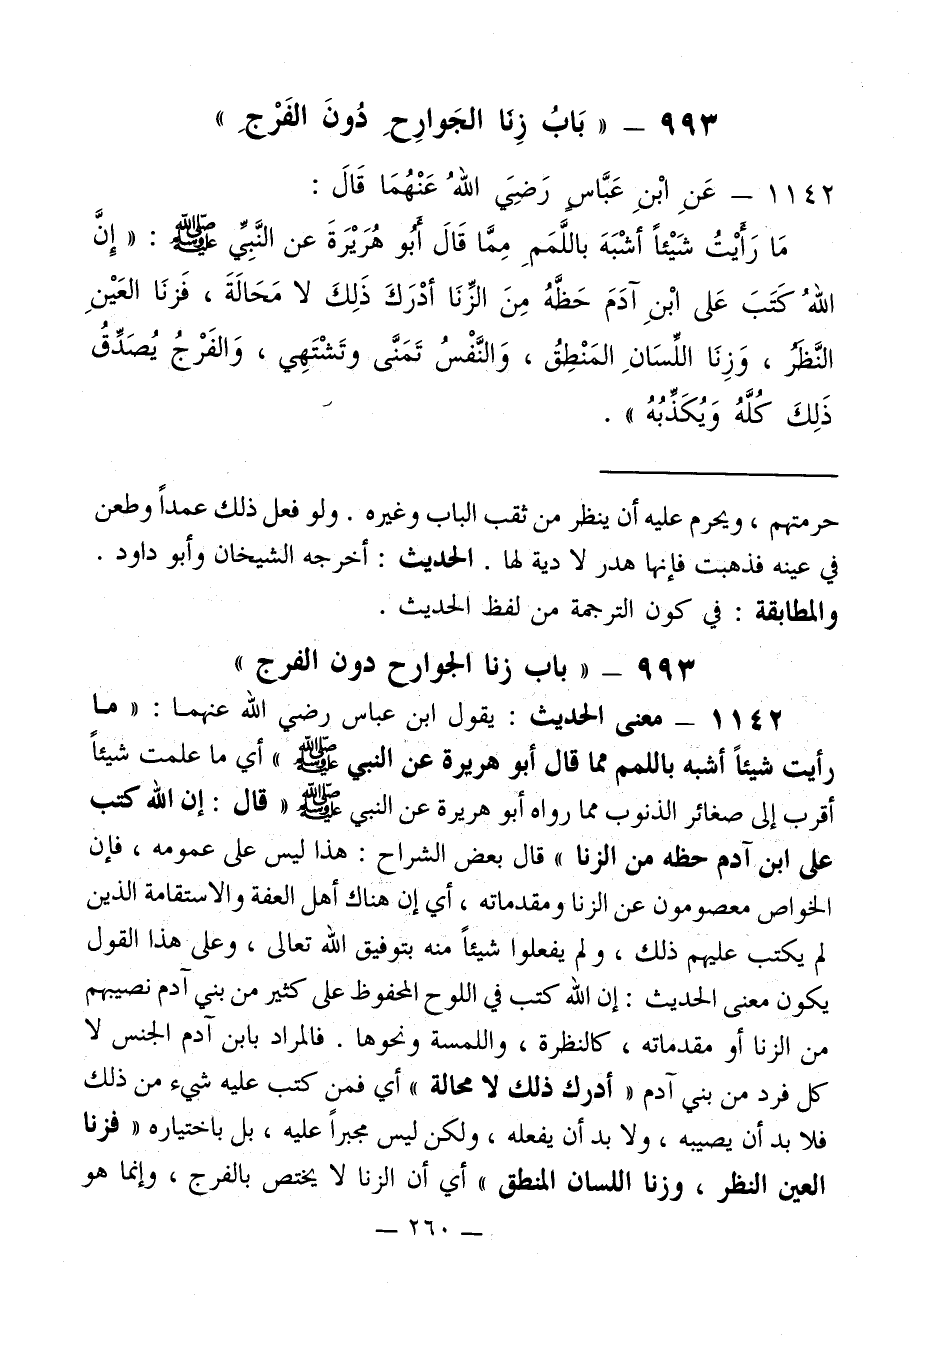 ٩٩٣ – « بَابُ زِنَا الجَوارِحِ دُونَ الفَرْجِ »
١١٤٢ – عَنِ ابْنِ عَبَّاسٍ رَضِيَ اللهُ عَنْهُمَا قَالَ :
مَا رَأَيْتُ شَيْئاً أشْبَهَ باللَّمَمِ مِمَّا قَالَ أَبُو هُرَيْرَةَ عن النَّبِيِّ ﷺ : « إِنَّ
اللهُ كَتَبَ عَلى ابْنِ آدَمَ حَظَّهُ مِنَ الزِّنَا أدْرَكَ ذَلِكَ لا مَحَالَةَ ، فَزِنَا العَيْنِ
النَّظَرُ ، وَزِنَا اللِّسَانِ المَنْطِقُ ، وَالنَّفْسُ تَمَنَّى وتَشْتَهِي ، وَالفَرْجُ يُصَدِّقُ
ذَلِكَ كُلَّهُ وَيُكَذِّبُهُ » .
حرمتهم ، ويحرم عليه أن ينظر من ثقب الباب وغيره . ولو فعل ذلك عمداً وطعن
في عينه فذهبت فإنها هدر لا دية لها . الحديث : أخرجه الشيخان وأبو داود .
والمطابقة : في كون الترجمة من لفظ الحديث .
٩٩٣ – « باب زنا الجوارح دون الفرج »
١١٤٢ – معنى الحديث : يقول ابن عباس رضي الله عنهما : « ما
رأيت شيئاً أشبه باللمم مما قال أبو هريرة عن النبي ﷺ » أي ما علمت شيئاً
أقرب إلى صغائر الذنوب مما رواه أبو هريرة عن النبي ﷺ « قال : إن الله كتب
على ابن آدم حظه من الزنا » قال بعض الشراح : هذا ليس على عمومه ، فإن
الخواص معصومون عن الزنا ومقدماته ، أي إن هناك أهل العفة والاستقامة الذين
لم يكتب عليهم ذلك ، ولم يفعلوا شيئاً منه بتوفيق الله تعالى ، وعلى هذا القول
يكون معنى الحديث : إن الله كتب في اللوح المحفوظ على كثير من بني آدم نصيبهم
من الزنا أو مقدماته ، كالنظرة ، واللمسة ونحوها . فالمراد بابن آدم الجنس لا
كل فرد من بني آدم « أدرك ذلك لا محالة » أي فمن كتب عليه شيء من ذلك
فلا بد أن يصيبه ، ولا بد أن يفعله ، ولكن ليس مجبراً عليه ، بل باختياره « فزنا
العين النظر ، وزنا اللسان المنطق » أي أن الزنا لا يختص بالفرج ، وإنما هو
– ٢٦٠ –